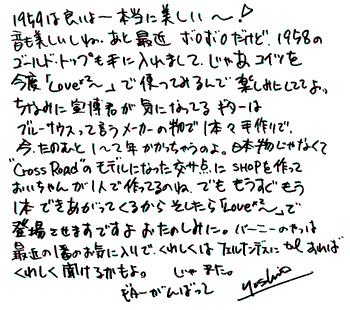 1959は良いよ〜本当に美しい〜!
音も美しいしね。あと最近 ボロボロだけど、1958の
ゴールド・トップも手に入れまして、じゃあコイツを
今度「Loveず〜」で使ってみるんで楽しみにしててよ。
ちなみに宣博君が気になってるギターは
ブルーサウスって言うメーカーの物で1本々手作りで、
今、たのむと1〜2年かかっちゃうのよ。日本物じゃなくて
"Cross Road"のモデルになった交サ点にSHOPを作って
おいちゃんが1人で作ってるのね、でももうすぐもう
1本できあがってくるからそしたら「Loveず〜」で
登場させますですよおたのしみに。バーニーのやつは
最近の1番のお気に入りで、くわしくはフェルナンデスにtelすれば
くわしく聞けるかもよ。 じゃまた。
ギターがんばって yoshio